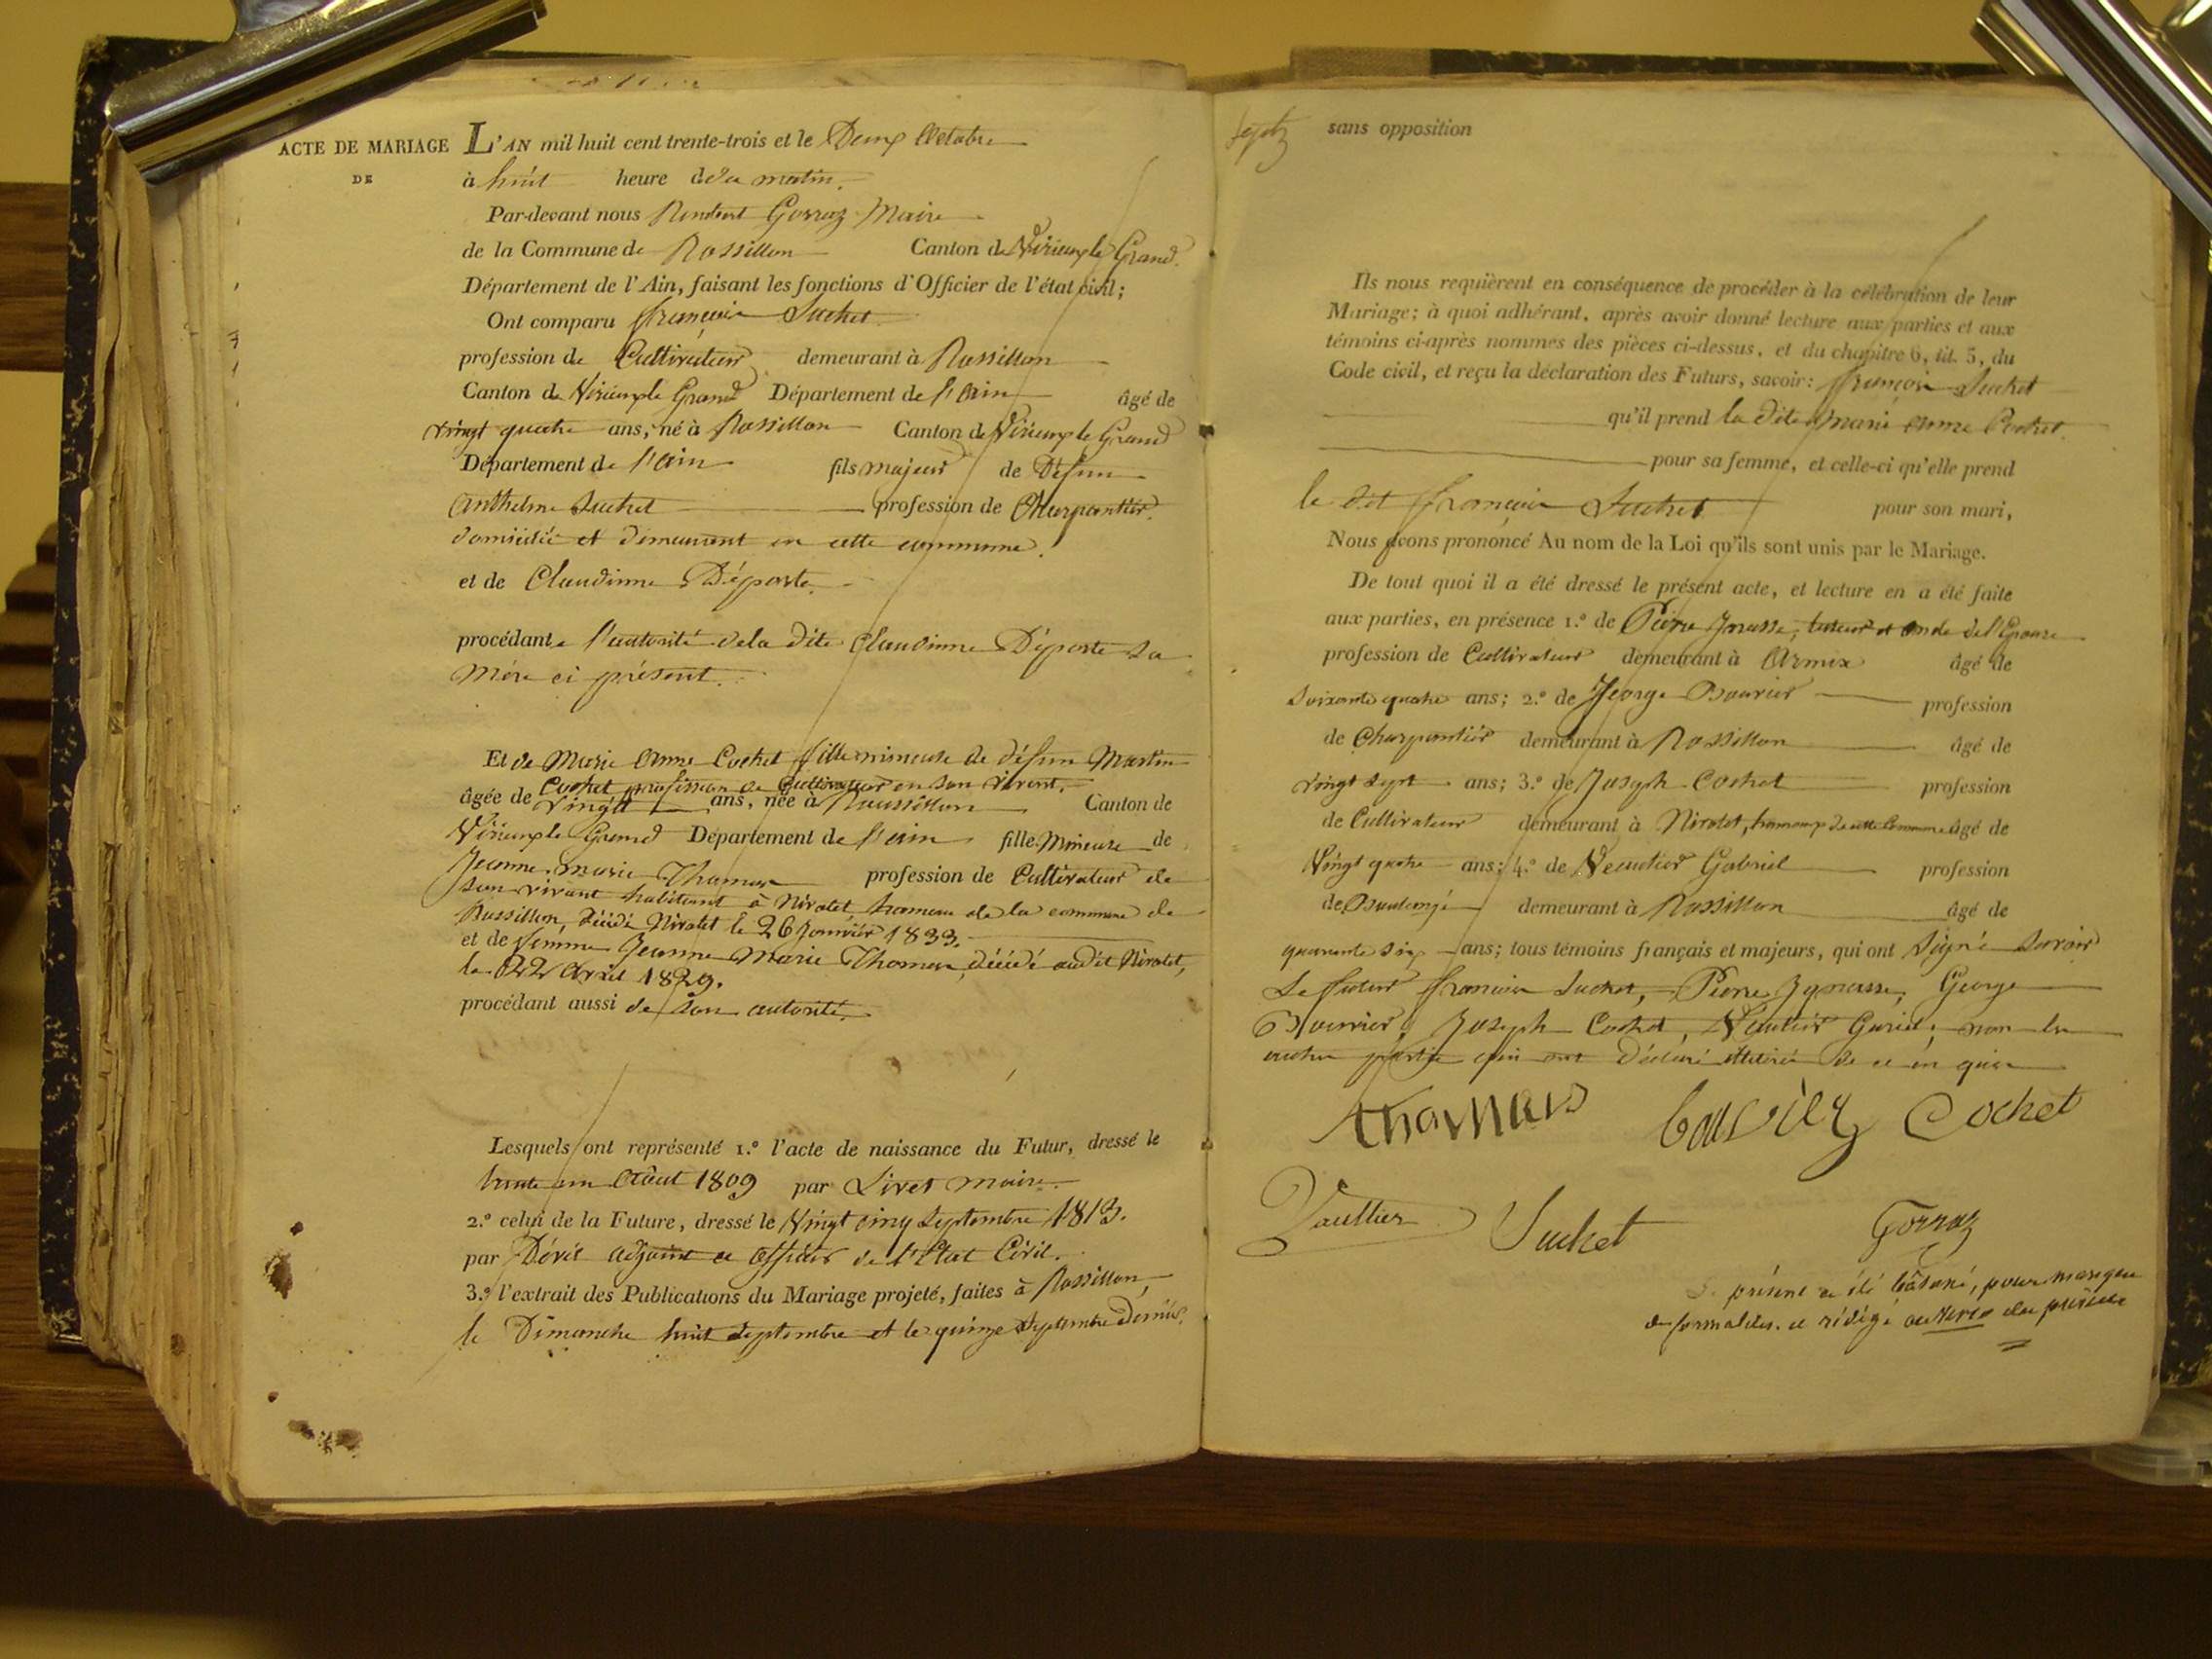 ACTE DE MARIAGE
DE
L'AN mil huit cent trente-trois et le Deux Octobre
à huit heure de du matin.
Par-devant nous Gorraz Maire
de la Commune de Rossillon Canton de Virieux le Grand.
Département de l'Ain, faisant les fonctions d'Officier de l'état civil;
Ont comparu françois Suchet
profession de Cultivateur demeurant à Rossillon
Canton de Virieux le Grand Département de l'ain âgé de
vingt quatre ans, né à Rossillon Canton de Virieux le Grand
Département de l'ain fils majeur de Défun
Anthelme Suchet profession de Charpentier.
domicilié et demeurant en cette commune.
et de Claudinne Déporte.
procédant l'autorité dela dite Claudinne Déporte sa
mère ci présent.
Et de Marie Anne Cochet fille mineuse de défun Martin
Cochet profission de Cultivateur en son vivant.
âgée de vingt ans, née à Roussillon Canton de
Virieux le Grand Département de l'ain fille Mineuse de
Jeanne marie Thomas profession de Cultivateur de
son vivant habitant à Nivolet hameau de la commune de
Rossillon, décédé Nivolet le 26 Janvier 1833.
et de femme Jeanne Marie Thomas, décédé audit Nivolet,
le 22 Avril 1829.
procédant aussi de son autorité.
Lesquels ont représenté 1.º l'acte de naissance du Futur, dressé le
trente un Août 1809 par Livet maire.
2.º celui de la Future, dressé le Vingt cinq Septembre 1813.
par adjoint officier de l'Etat Civil.
3.º l'extrait des Publications du Mariage projeté, faites à Rossillon,
le Dimanche huit Septembre et le quinze Septembre Dernié.
sans opposition
Ils nous requièrent en conséquence de procéder à la célébration de leur
Mariage; à quoi adhérant, après avoir donné lecture aux parties et aux
témoins ci-après nommés des pièces ci-dessus, et du chapitre 6, tit. 5, du
Code civil, et reçu la déclaration des Futurs, savoir: françois Suchet
qu'il prend la dite marie Anne Cochet.
pour sa femme, et celle-ci qu'elle prend
le dit françois Suchet pour son mari,
Nous avons prononcé Au nom de la Loi qu'ils sont unis par le Mariage.
De tout quoi il a été dressé le présent acte, et lecture en a été faite
aux parties, en présence 1.º de Pierre tuteur et oncle de l'Epouse
profession de Cultivateur demeurant à Armix âgé de
soixante quatre ans; 2.º de George Bouvier profession
de Charpentier demeurant à Rossillon âgé de
vingt sept ans; 3.º de Joseph Cochet profession
de Cultivateur demeurant à Nivolet, hameaux de cette Commune âgé de
Vingt quatre ans; 4.º de Veautier Gabriel profession
de Boulengé demeurant à Rossillon âgé de
quarante six ans; tous témoins français et majeurs, qui ont signé savoir
Le futur francois Suchet, Pierre George
Bouvier, Joseph Cochet, Veautier non les
autres partie qui ont Déclaré illitéré de ce en quis
thomas bouvier Cochet
Vaultier Suchet Gorraz
présent a été bâtoné, pour manque
de formalités. et rédigé au Verso du présent